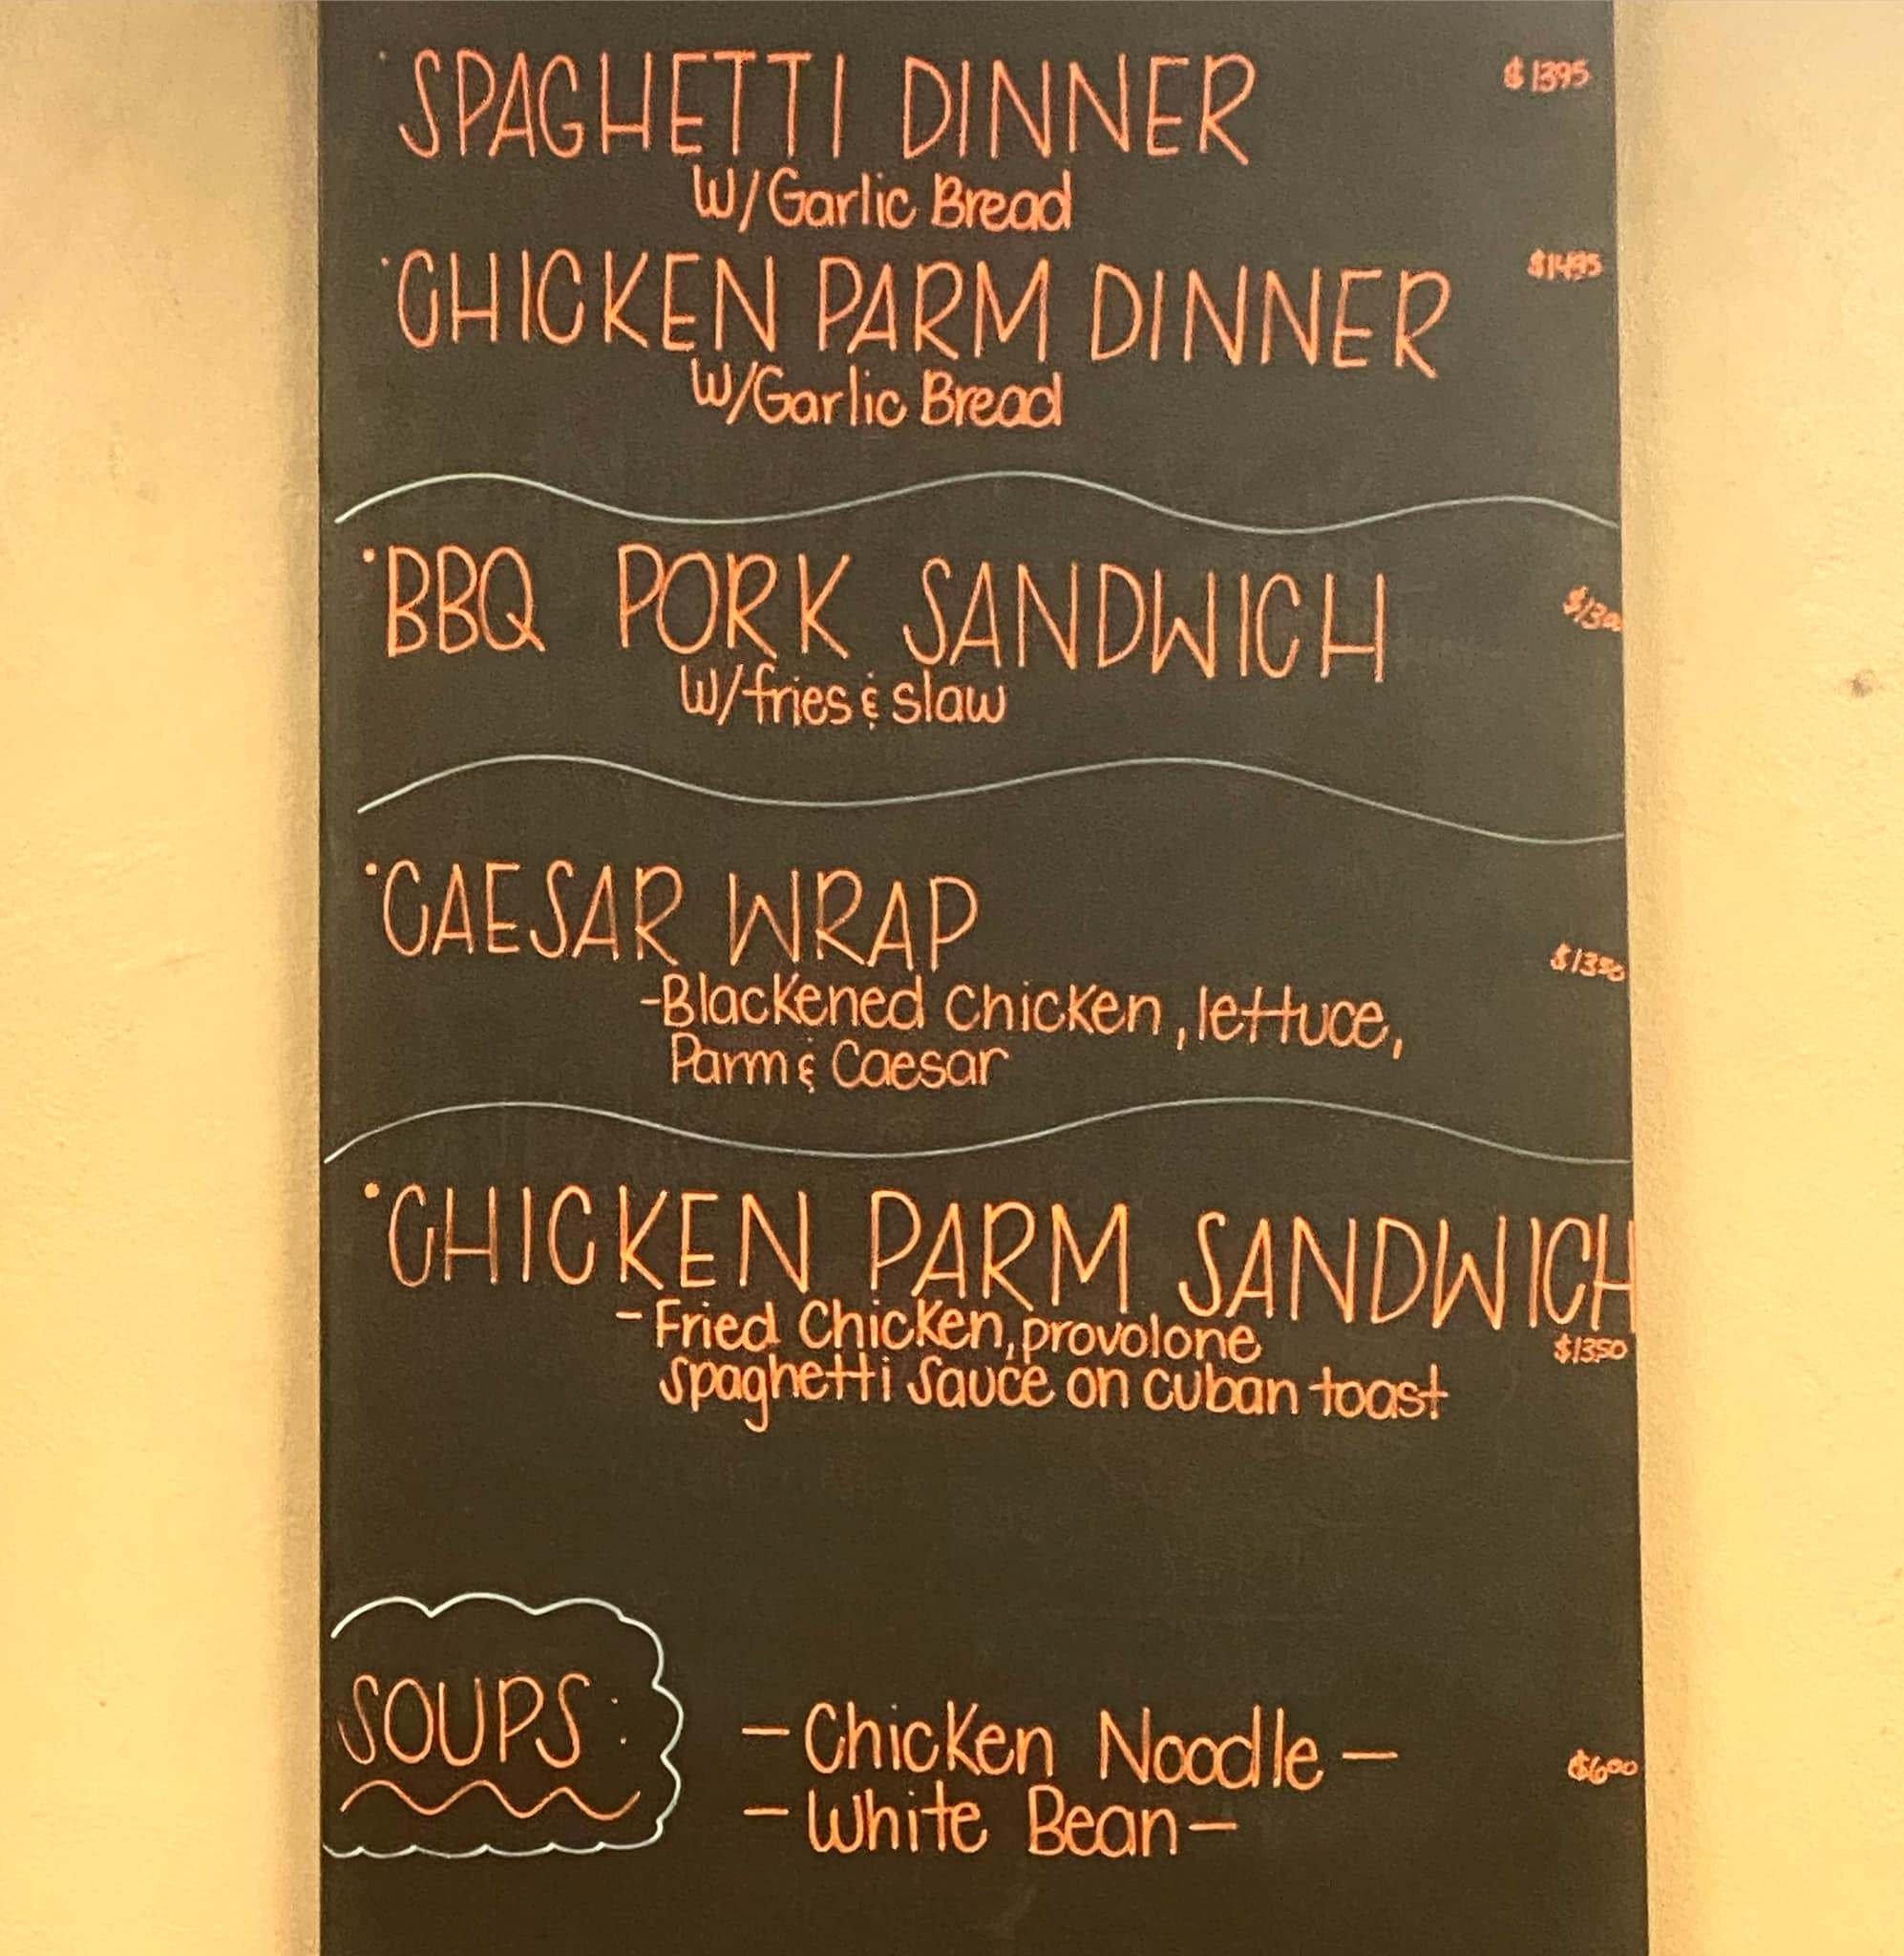 SPAGHETTI DINNER $1395
W/Garlic Bread
CHICKEN PARM DINNER $1495
W/Garlic Bread
BBQ PORK SANDWICH $1300
W/fries & slaw
CAESAR WRAP
$1350
-Blackened Chicken, lettuce,
Parm & Caesar
CHICKEN PARM SANDWICH
-Fried Chicken, provolone
$1350
spaghetti sauce on cuban toast
SOUPS:
-Chicken Noodle-
$600
-White Bean-